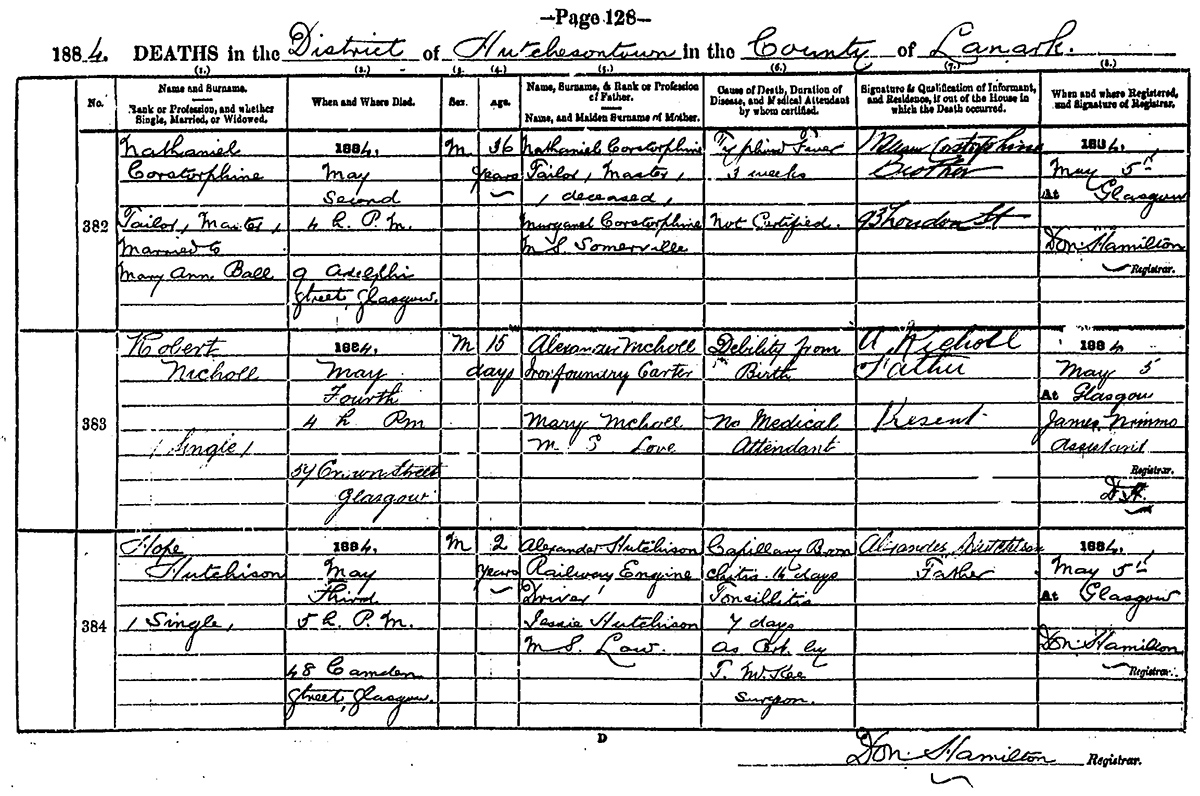 —Page 128—
1884. DEATHS in the District of Hutchesontown in the County of Lanark.
(1.) (2.) (3. (4.) (5.) (6.) (7.) (8.)
No.
Name and Surname.
Rank or Profession, and whether
Single, Married, or Widowed.
When and Where Died.
Sex.
Age.
Name, Surname, & Rank or Profession
of Father.
Name, and Maiden Surname of Mother.
Cause of Death, Duration of
Disease, and Medical Attendant
by whom certified.
Signature & Qualification of Informant,
and Residence, if out of the House in
which the Death occurred.
When and where Registered,
and Signature of Registrar.
382
Nathaniel
Corstorphine
Tailor, Master,
Married to
Mary Ann Ball
1884.
May
Second
4 h. P.M.
9 Adelphi
Street, Glasgow.
M.
36
years
Nathaniel Corstorphine
Tailor, Master,
, deceased,
Margaret Corstorphine
M.S. Somerville
Typhoid Fever
3 weeks
Not Certified.
Corstorphine
Brother
93 London St
1884,
May 5th
At Glasgow
Don. Hamilton
Registrar.
383
Robert
Nicholl
, Single,
1884.
May
Fourth
4 h Pm
54 Crown Street
Glasgow
M
15
days
Alexander Nicholl
Iron foundry Carter
Mary Nicholl
M. S Love
Debility from
Birth
No Medical
Attendant
A Nicholl
Father
Present
1884
May 5
At Glasgow
James Nimmo
Assistant
Registrar
D.H.
384
Hope
Hutchison
, Single,
1884.
May
Third
5 h. P.M.
48 Camden
Street, Glasgow.
M.
2
years
Alexander Hutchison
Railway Engine
Driver
Jessie Hutchison
M.S. Law.
Capillary Bron
chitis. 14 days
Tonsillitis
7 days
as Cert. by
T. McKee
Surgeon.
Alexander Hutchison
Father
1884.
May 5th
At Glasgow
Don. Hamilton
Registrar.
D
Don. Hamilton Registrar.